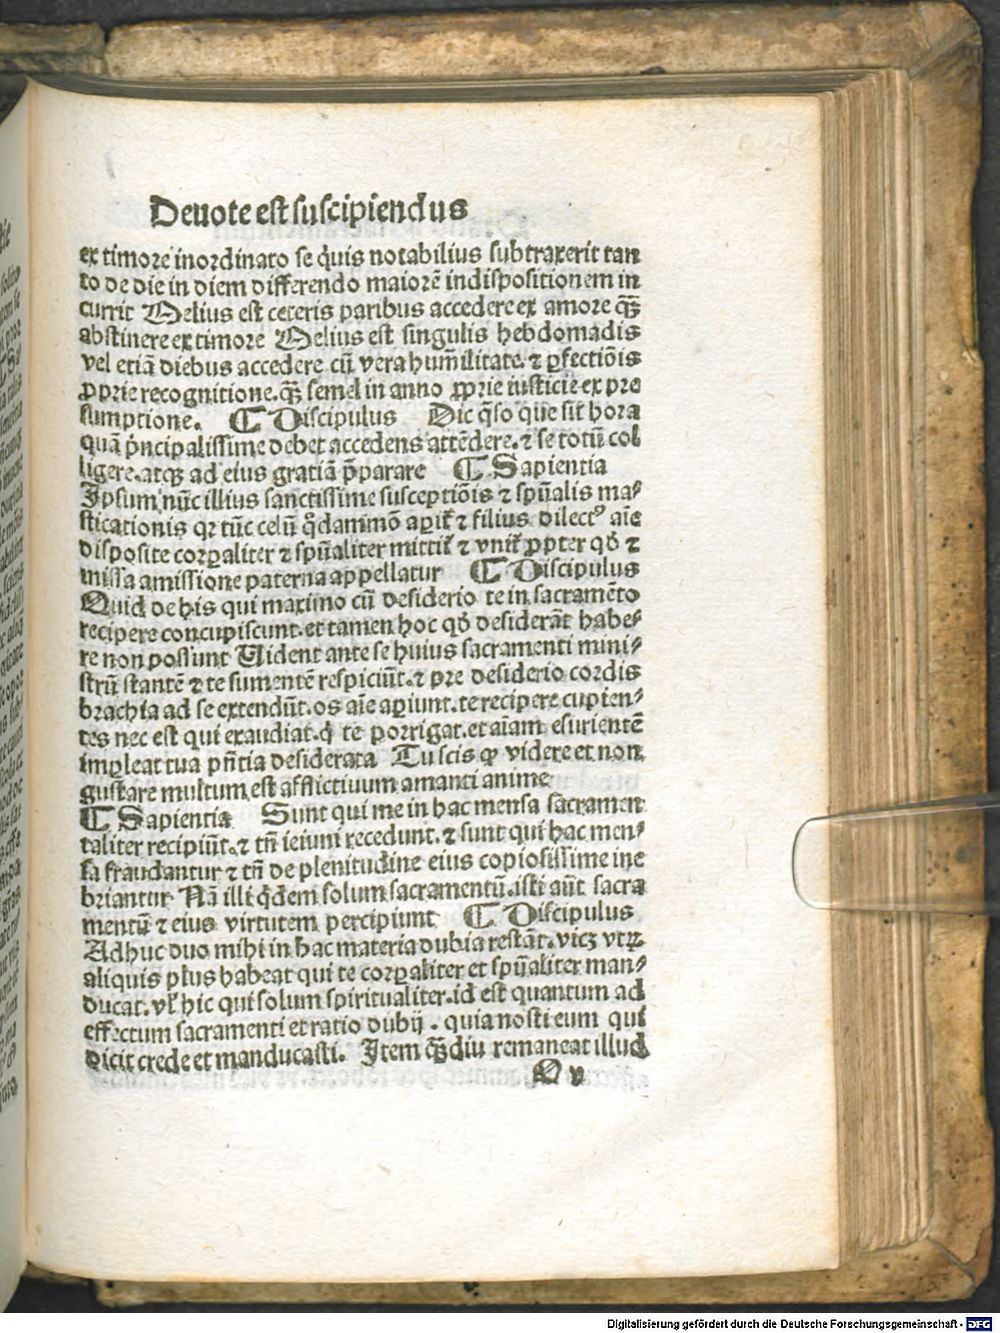 Deuote est suscipiendus
ex timore inordinato se q̇uis notabilius subtraxerit tan
to de die in diem differendo maiorē indispositionem in
currit Melius est ceteris paribus accedere ex amore q̄ꝫ
abstinere ex timore Melius est singulis hebdomadis
vel etiā diebus accedere cū vera humilitate. ⁊ ꝑfectiōis
ꝓprie recognitione. q̄ꝫ semel in anno ꝓprie iusticie ex pre
sumptione. ¶ Discipulus Dic q̄so que sit hora
quā pͥncipalissime debet accedens attēdere. ⁊ se totū col
ligere. atqꝫ ad eius gratiā p̄parare ¶ Sapientia
Ipsum nūc illius sanctissime susceptiōis ⁊ spūalis ma⸗
sticationis qꝛ tūc celū q̄dammō aꝑit᷑ ⁊ filius dilectꝰ aīe
disposite corꝑaliter ⁊ spūaliter mittit᷑ ⁊ vnit᷑ ꝓpter qḋ ⁊
missa a missione paterna appellatur ¶ Discipulus
Quid de his qui maximo cū desiderio te in sacramēto
recipere concupiscunt. et tamen hoc qḋ desiderāt habe⸗
re non possunt Uident ante se huius sacramenti mini⸗
strū stantē ⁊ te sumentē respiciūt. ⁊ pre desiderio cordis
brachia ad se extendūt. os aīe aꝑiunt. te recipere cupien⸗
tes nec est qui exaudiat. q̇ te porrigat. et aīam esurientē
impleat tua pn̄tia desiderata Tu scis ꝙ videre et non
gustare multum est afflictiuum amanti anime
¶ Sapientia Sunt qui me in hac mensa sacramen
taliter recipiūt. ⁊ tn̄ ieiuni recedunt. ⁊ sunt qui hac men⸗
sa fraudantur ⁊ tn̄ de plenitudine eius copiosissime ine
briantur Nā illi q̇dem solum sacramentū. isti aūt sacra
mentū ⁊ eius virtutem percipiunt ¶ Discipulus
Adhuc duo mihi in hac materia dubia restāt. vicꝫ vtꝝ
aliquis plus habeat qui te corꝑaliter et spūaliter man⸗
ducat. vl̄ hic qui solum spiritualiter. id est quantum ad
effectum sacramenti et ratio dubij . quia nosti eum qui
dicit crede et manducasti. Item q̄ꝫdiu remaneat illud
Q v
Digitalisierung gefördert durch die Deutsche Forschungsgemeinschaft - DFG